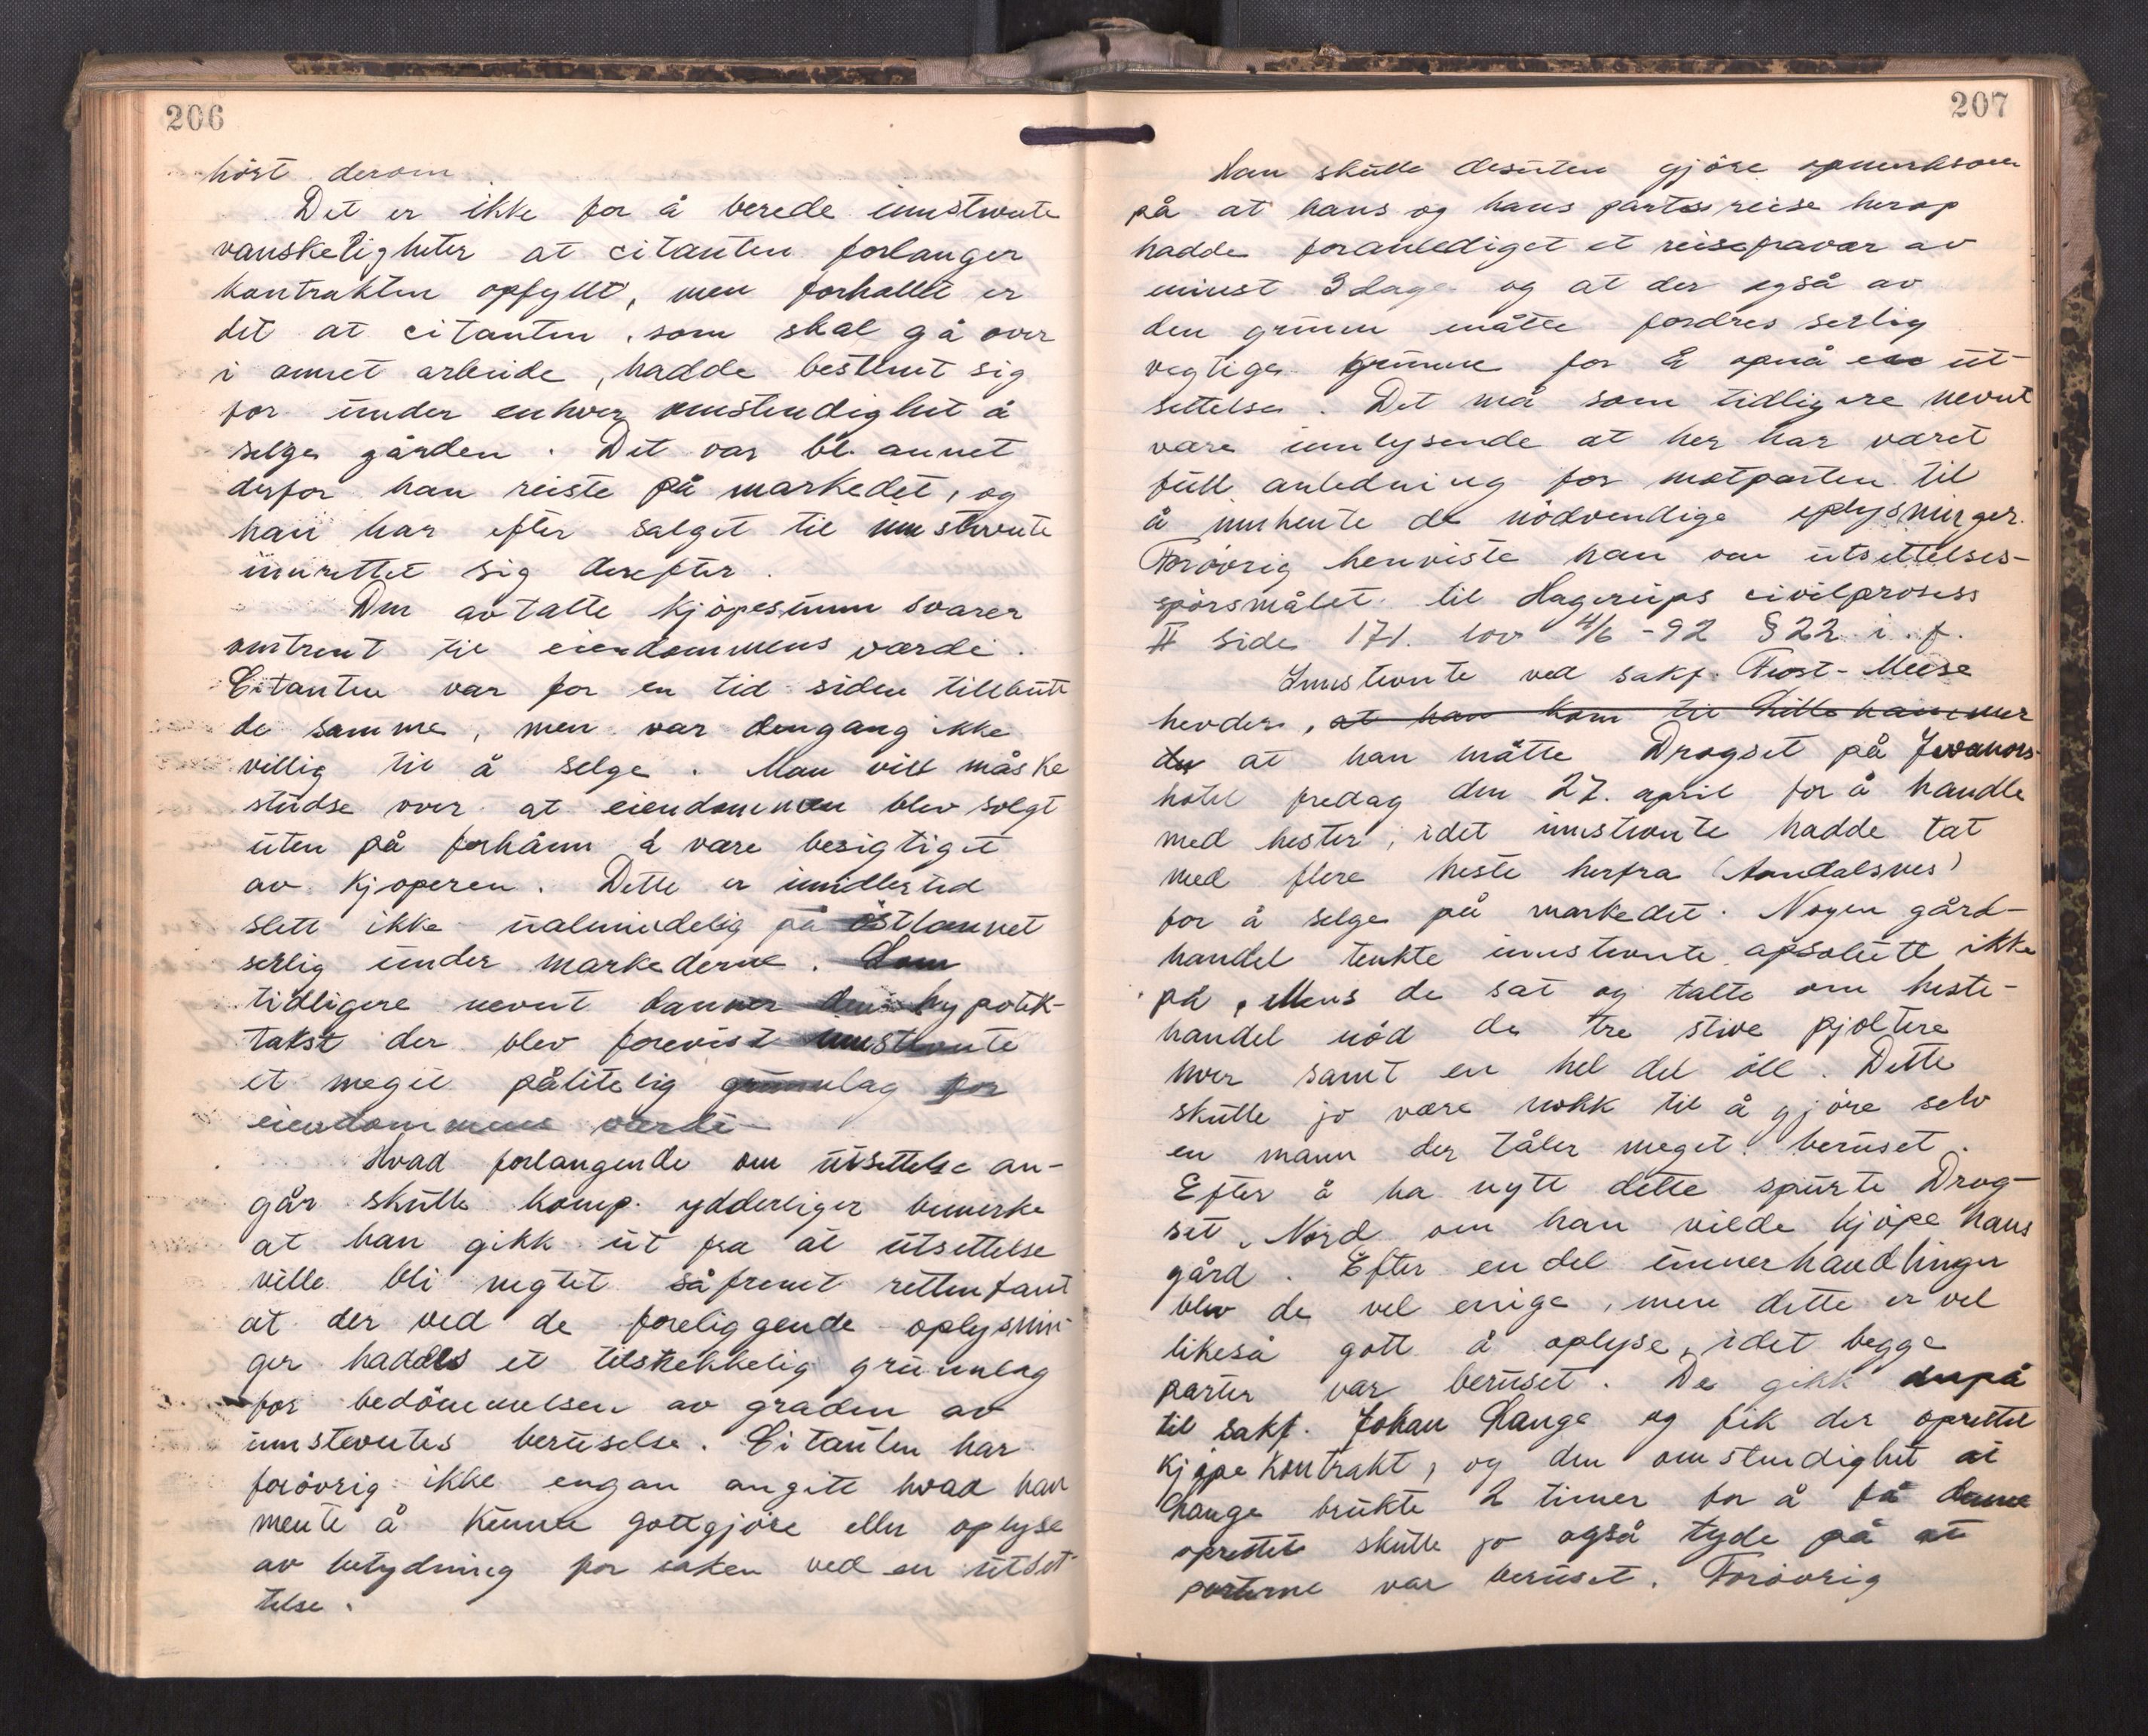 206
hört derom
Det er ikke for å berede innstevnte
vanskeligheter at citanten forlanger
kontrakten opfyllt, men forhallet er
det at citanten, som skal gå over
i annet arbeide, hadde bestemt sig
for under enhver omstendighet å
selge gården. Det var bl. annet
derfor han reiste på markedet, og
han har efter salget til innstevnte
innrettet sig derefter.
Den avtalte kjöpesumm svarer
omtrent til eiendommens værdi.
Citanten var for en tid siden tillbutt
de samme, men var dengang ikke
villig til å selge. Man vill måske
studse over at eiendommen blev solgt
uten på forhånn å være besigtiget
av kjoperen. Dette er imidlertid
slett ikke ualmindelig på östlannet
serlig under markederne. Som
tidligere nevnt danner den hypotek-
takst der blev forevist innstevnte
et meget pålitelig grunnlag for
eiendommens værdi-
Hvad forlangende om utsettelse an-
går skulle komp. ydderliger bemerke
at han gikk ut fra at utsettelse
ville bli negtet såfremt retten fant
at der ved de foreliggende oplysnin-
ger haddes et tilstrekkelig grunnlag
for bedömmelsen av graden av
innstevntes beruselse. Citanten har
forövrig ikke engan angitt hvad han
mente å kunne gottgjöre eller oplyse
av betydning for saken ved en utset-
telse.
207
Han skulle desuten gjöre opmerksom
på at hans og hans partss reise herop
hadde foranlediget et reisefravær av
minst 3 dage og at der også av
den grunn måtte fordres serlig
vegtige grunne for å opnå en ut-
settelse. Det må som tidligere nevnt
være innlysende at her har været
full anledning for motparten til
å innhente de nödvendige oplysninger.
Forövrig henviste han om utsettelses-
spörsmålet til Hagerups civilprosess
II side 171. lov 4/6-92 § 22 i. f.
Innstevnte ved sakf. Frost-Meese
hevder, at han kom til Lillehammer
du at han måtte Drogset på Jevanors-
hotel fredag den 27. april for å handle
med hester, idet innstevnte hadde tat
med flere heste herfra (Aandalsnes)
for å selge på markedet. Nogen gård-
handel tenkte innstevnte apsolutt ikke
på. Mens de sat og talte om heste-
handel nöd de tre stive pjoltere
hver samt en hel del öll. Dette
skulle jo være nokk til å gjöre selv
en mann der tåler meget beruset.
Efter å ha nytt dette spurte Drog-
set, Nord om han vilde kjöpe hans
gård. Efter en del unnerhandlinger
blev de vel enige, men dette er vel
likeså gott å oplyse, idet begge
parter var beruset. De gikk derpå
til sakf. Johan Lange og fik der oprettet
kjöpekontrakt, og den omstendighet at
Lange brukte 2 timer for å få denne
oprettet skulle jo også tyde på at
parterne var beruset. Forövrig